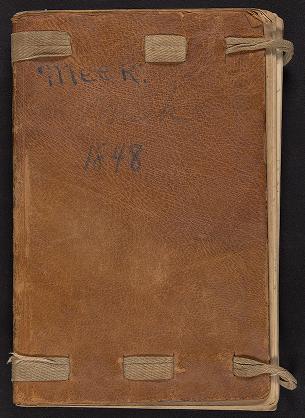 MEEK.
1848